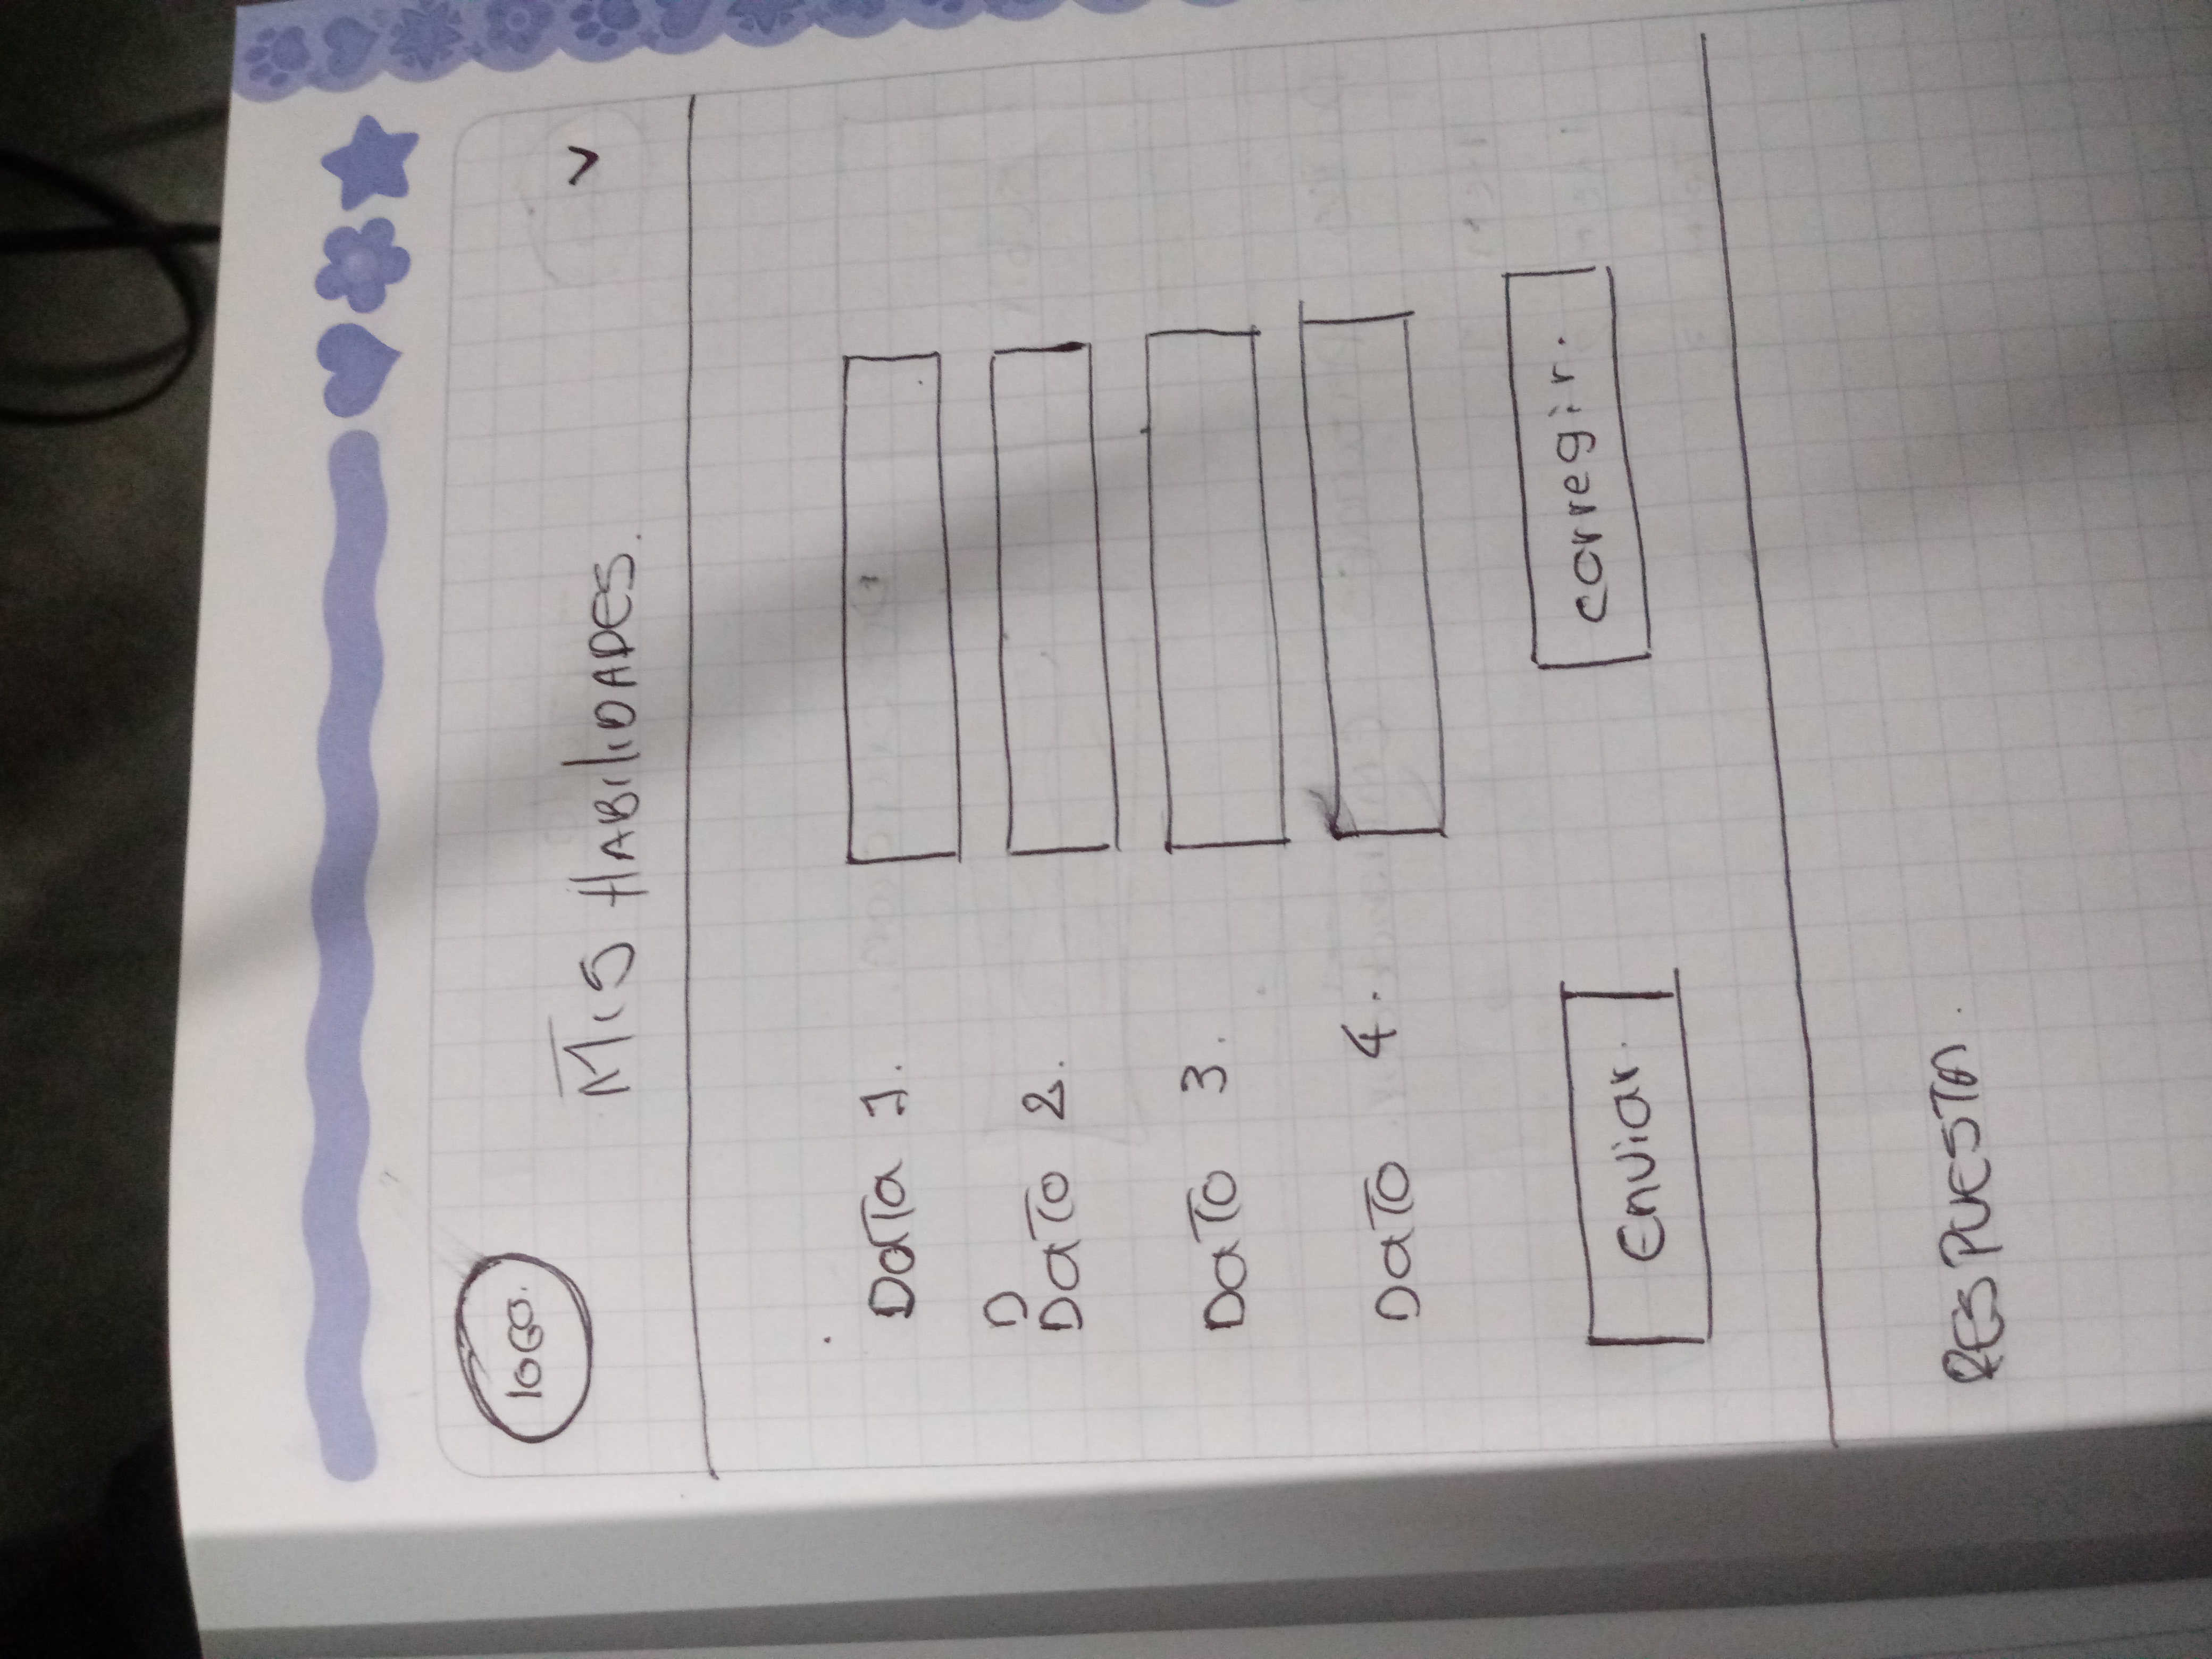 logo.
Mis HABILIDADES.
Data 1.
D
Dato 2.
Dato 3.
Dato 4.
Enviar.
corregir.
RESPUESTA.